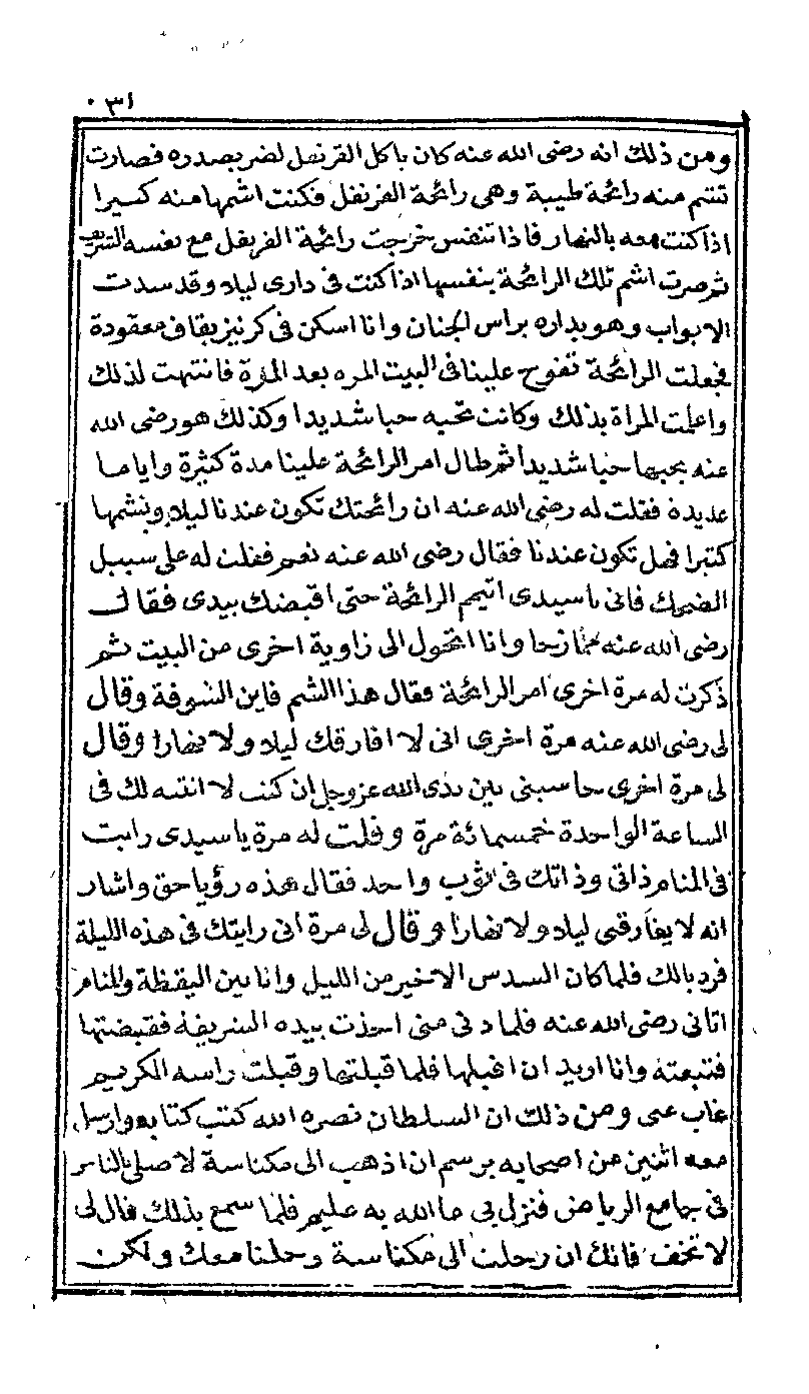 ٠٣١
ومن ذلك انه رضى الله عنه كان ياكل القرنفل لضر بصدره فصارت
تشم منه رائحة طيبة وهى رائحة القرنفل فكنت اشمها منه كثيرا
اذا كنت معه بالنهار فاذا تنفس خرجت رائحة القرنفل مع نفسه الشريف
ثم صرت اشم تلك الرائحة بنفسها اذا كنت فى دارى ليلا وقد سدت
الابواب وهو بداره براس الجنان وانا اسكن فى كرنيز بقاف معقودة
فجعلت الرائحة تفوح علينا فى البيت المره بعد المرة فانتبهت لذلك
واعلمت المراة بذلك وكانت تحبه حبا شديدا وكذلك هو رضى الله
عنه يحبها حبا شديدا ثم طال امر الرائحة علينا مدة كثيرة واياما
عديدة فقلت له رضى الله عنه ان رائحتك تكون عندنا ليلا ونشمها
كثيرا فهل تكون عندنا فقال رضى الله عنه نعم فقلت له على سبيل
الضحك فانى ياسيدى اتيمم الرائحة حتى اقبضك بيدى فقال
رضى الله عنه ممازحا وانا اتحول الى زاوية اخرى من البيت ثم
ذكرت له مرة اخرى امر الرائحة فقال هذا الشم فاين الشوفة وقال
لى رضى الله عنه مرة اخرى انى لا افارقك ليلا ولا نهارا وقال
لى مرة اخرى حاسبنى بين يدى الله عز وجل ان كنت لا انتبه لك فى
الساعة الواحدة خمسمائة مرة وقلت له مرة ياسيدى رايت
فى المنام ذاتى وذاتك فى ثوب واحد فقال هذه رؤيا حق واشار
انه لا يفارقنى ليلا ولا نهارا وقال لى مرة انى رايتك فى هذه الليلة
فرد بالك فلما كان السدس الاخير من الليل وانا بين اليقظة والمنام
اتانى رضى الله عنه فلما دنى منى اخذت بيده الشريفة فقبضتها
فتبعته وانا اريد ان اقبلها فلما قبلتها وقبلت راسه الكريم
غاب عنى ومن ذلك ان السلطان نصره الله كتب كتابه وارسل
معه اثنين من اصحابه برسم ان اذهب الى مكناسة لاصلى بالناس
فى جامع الرياض فنزل بى ما الله به عليم فلما سمع بذلك قال لى
لا تخف فانك ان رحلت الى مكناسة رحلنا معك ولكن